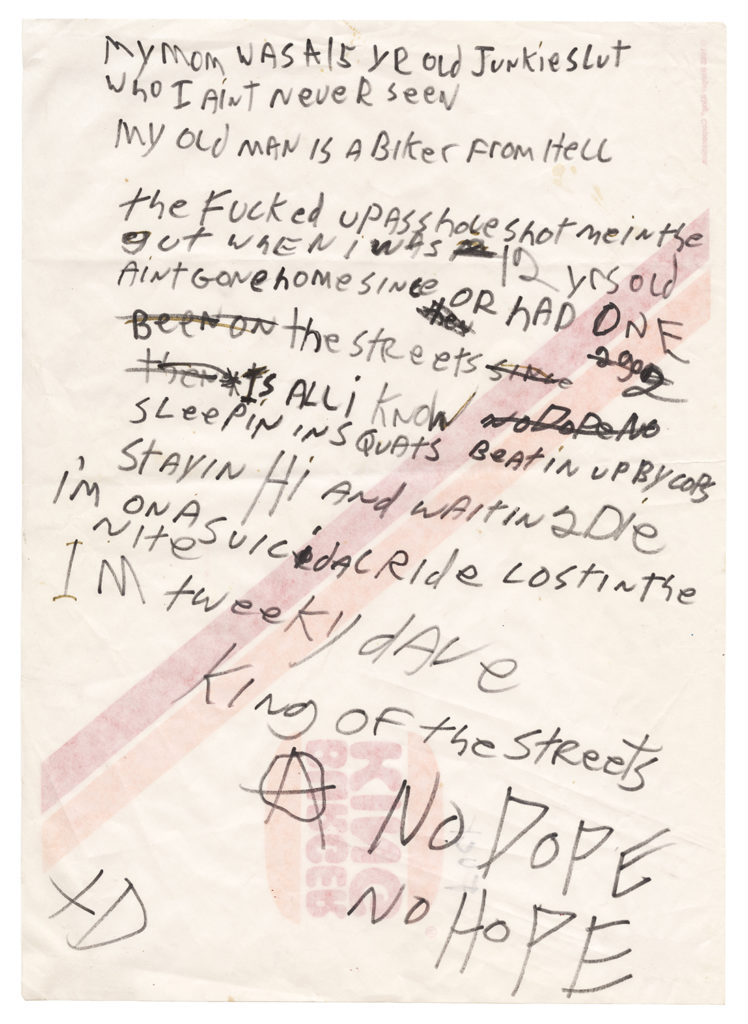 MY MOM WAS A 15 YR OLD JUNKIE SLUT
WHO I AINT NEVER SEEN
MY OLD MAN IS A BIKER FROM HELL
the FUCKED UP ASShole shot me in the
gut WHEN i WAS 12 yrs old
AINT GONE home SINCE then OR hAD ONE
BEEN ON the STREETS SINCE
then IS ALL i KNOW NO DOPE NO
SLEEPIN IN SQUATS BEATIN UP BY COPS
STAYIN Hi AND WAITIN 2 DIE
I'M ON A SUICIDAL RIDE LOST IN the
NITE
I'M tweeky dAve
KING OF the STREETS
Ⓐ NO DOPE
NO HOPE
XD
BURGER
KING
®